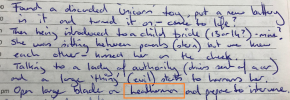 Found a discarded Unicorn toy, put a new battery
in it and turned it on - came to life?
Then being introduced to a child bride (13 or 14?) - mine?
She was sitting between parents (okra) but we knew
each other - kissed her on the cheek.
Talking to a lady of authority (think sent of a war)
and a large 'thing' (evil) starts to harass her.
Open large blade on Leatherman and prepare to intervene.